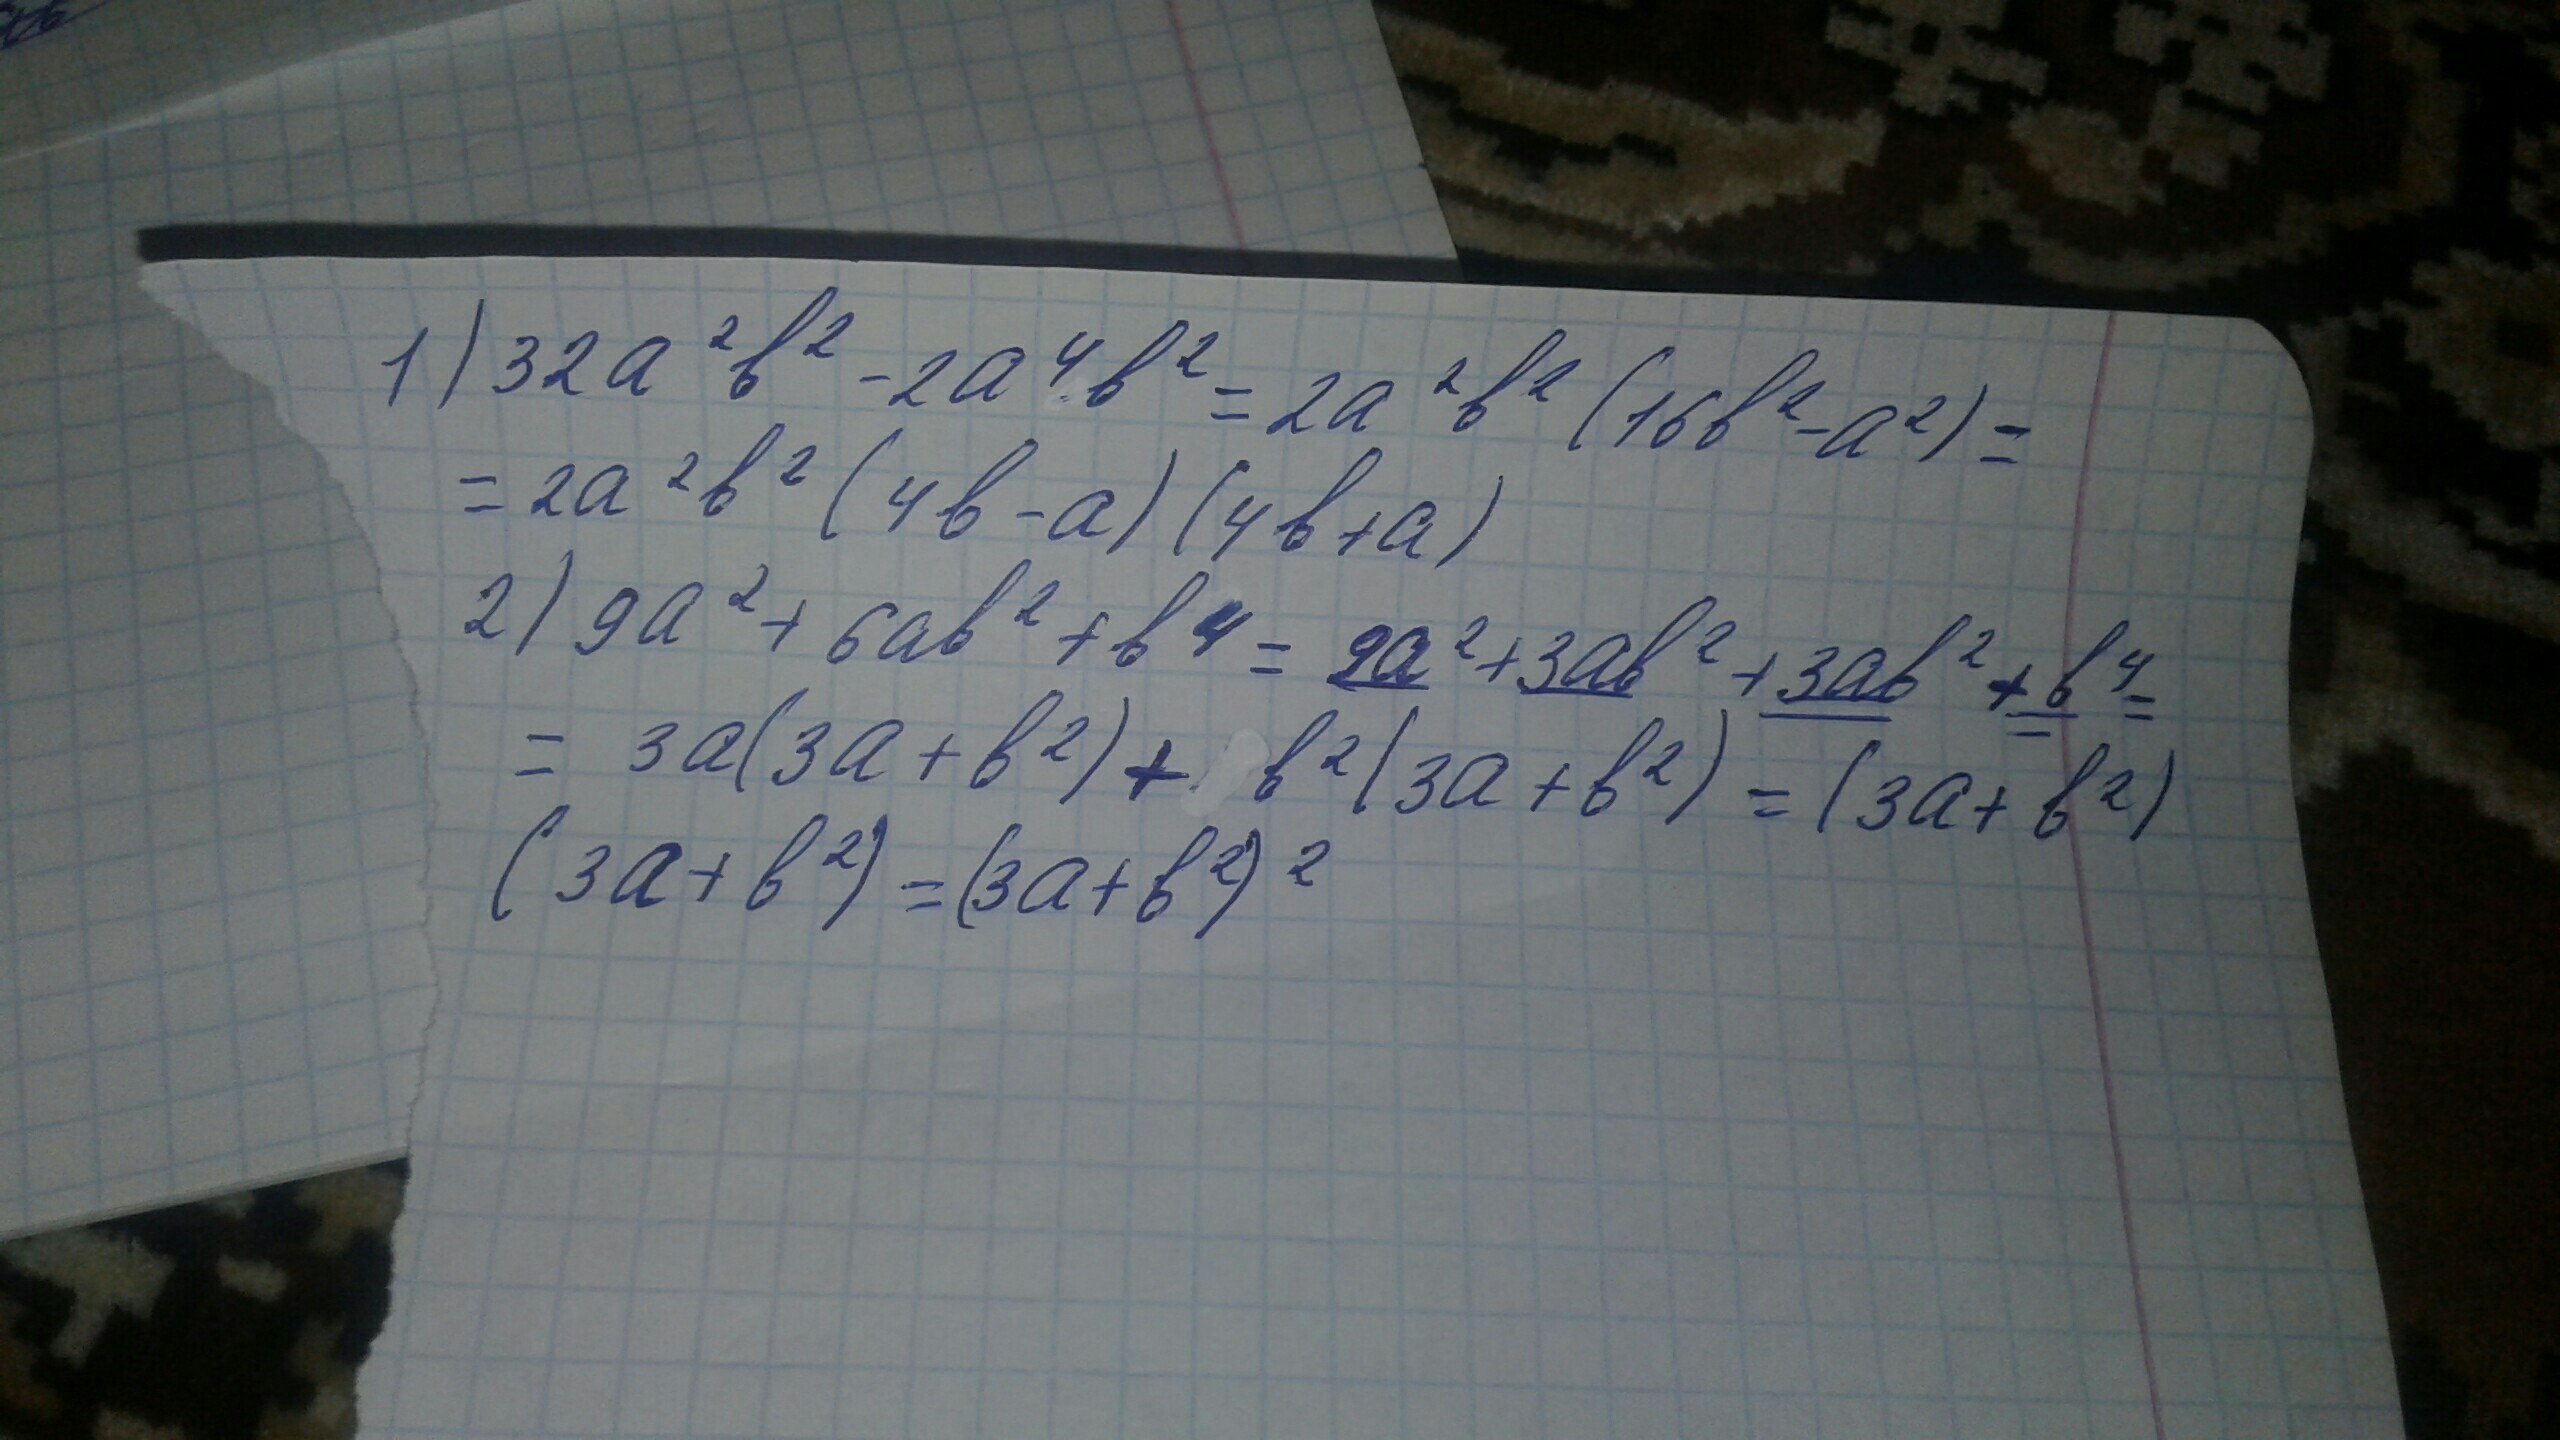 1) 32a²b² - 2a⁴b² = 2a²b² (16b² - a²) =
= 2a²b² (4b - a) (4b + a)
2) 9a² + 6ab² + b⁴ = 9a² + 3ab² + 3ab² + b⁴ =
= 3a(3a + b²) + b²(3a + b²) = (3a + b²)
(3a + b²) = (3a + b²)²